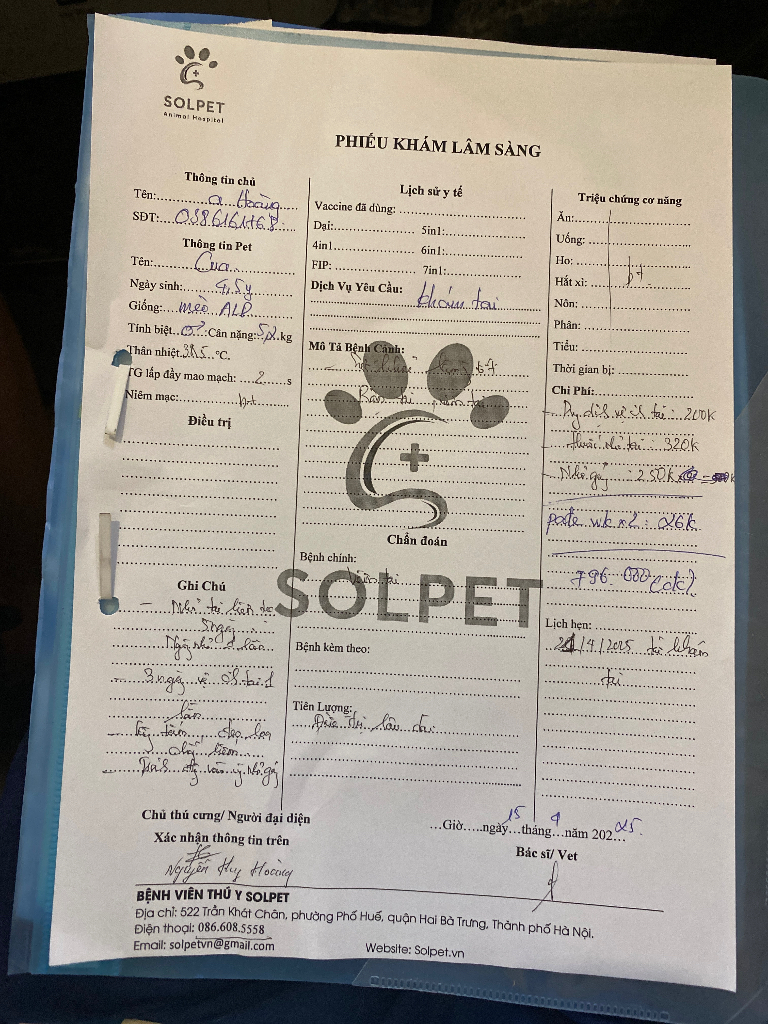 SOLPET
Animal Hospital
PHIẾU KHÁM LÂM SÀNG
Thông tin chủ
Tên: a Hoàng
SĐT: 0386161168
Thông tin Pet
Tên: Cua
Ngày sinh: 4,5y
Giống: mèo ALD
Tính biệt: ♂ Cân nặng: 5,2 kg
Thân nhiệt 38.5 °C.
TG lấp đầy mao mạch: 2 s
Niêm mạc: bt
Điều trị
Ghi Chú
- Nhỏ tai liên tục
5 ngày
Ngày nhỏ 2 lần
- 3 ngày vệ sinh tai 1
lần
- đeo loa
chống liếm
- nhỏ gáy
Lịch sử y tế
Vaccine đã dùng:
Dại: 5in1:
4in1 6in1:
FIP: 7in1:
Dịch Vụ Yêu Cầu: khám tai
Mô Tả Bệnh Cảnh:
Chẩn đoán
Bệnh chính:
viêm tai
SOLPET
Bệnh kèm theo:
Tiên Lượng:
Điều trị lâu dài
Triệu chứng cơ năng
Ăn:
Uống:
Ho:
Hắt xì: bt
Nôn:
Phân:
Tiểu:
Thời gian bị:
Chi Phí:
- vệ sinh tai: 200k
- thuốc nhỏ tai: 320k
- Nhỏ gáy: 250k
pate wk x2: 26k
796.000 (ck)
Lịch hẹn:
21/4/2025 tái khám
tai
Chủ thú cưng/ Người đại diện
Xác nhận thông tin trên
Nguyễn Huy Hoàng
...Giờ.....ngày 15 tháng 4 năm 202 025.
Bác sĩ/ Vet
BỆNH VIÊN THÚ Y SOLPET
Địa chỉ: 522 Trần Khát Chân, phường Phố Huế, quận Hai Bà Trưng, Thành phố Hà Nội.
Điện thoại: 086.608.5558
Email: solpetvn@gmail.com Website: Solpet.vn